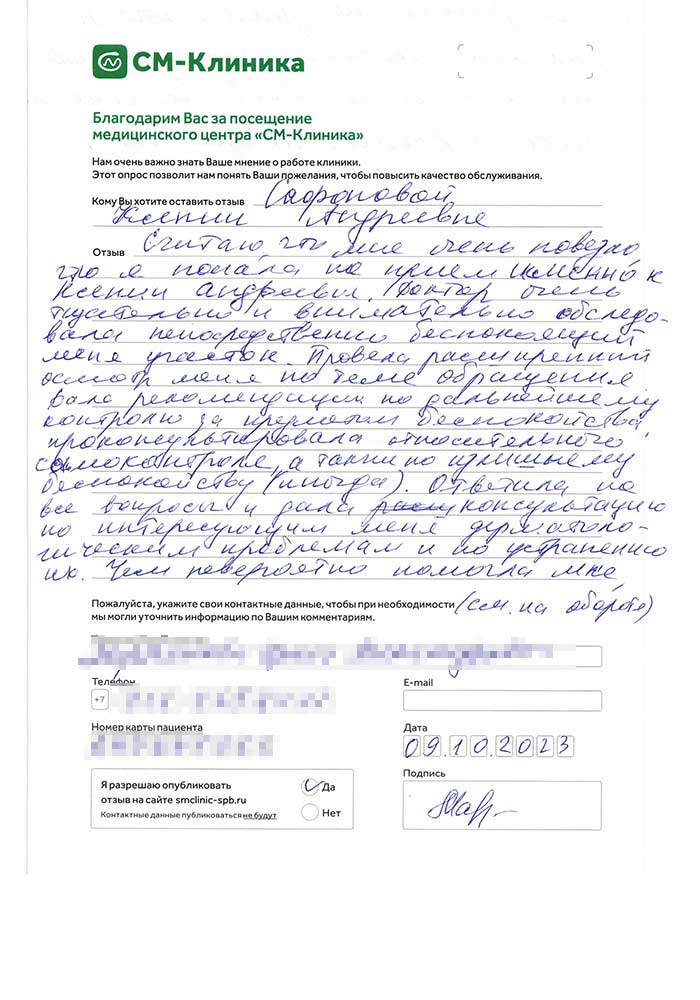 СМ-Клиника
Благодарим Вас за посещение
медицинского центра «СМ-Клиника»
Нам очень важно знать Ваше мнение о работе клиники.
Этот опрос позволит нам понять Ваши пожелания, чтобы повысить качество обслуживания.
Кому Вы хотите оставить отзыв Сафоновой
Ксении Андреевне
Отзыв Считаю, что мне очень повезло,
что я попала на прием именно к
Ксении Андреевы. Доктор очень
тщательно и внимательно обследо-
вала непосредственно беспокоящий
меня участок. Провела расширенный
осмотр меня по теме обращения
Дала рекомендации по дальнейшему
контролю за предметом беспокойства,
проконсультировала относительного
самоконтроля, а также по излишнему
беспокойству (иногда). Ответила на
все вопросы и дала консультацию
по интересующим меня дерматоло-
гическим проблемам и по устранению
их. Чем невероятно помогла мне,
Пожалуйста, укажите свои контактные данные, чтобы при необходимости (см. на обороте)
мы могли уточнить информацию по Вашим комментариям.
Телефон
E-mail
+7
Номер карты пациента
Дата
09.10.2023
Подпись
Я разрешаю опубликовать
отзыв на сайте smclinic-spb.ru
Контактные данные публиковаться не будут
Да
Нет